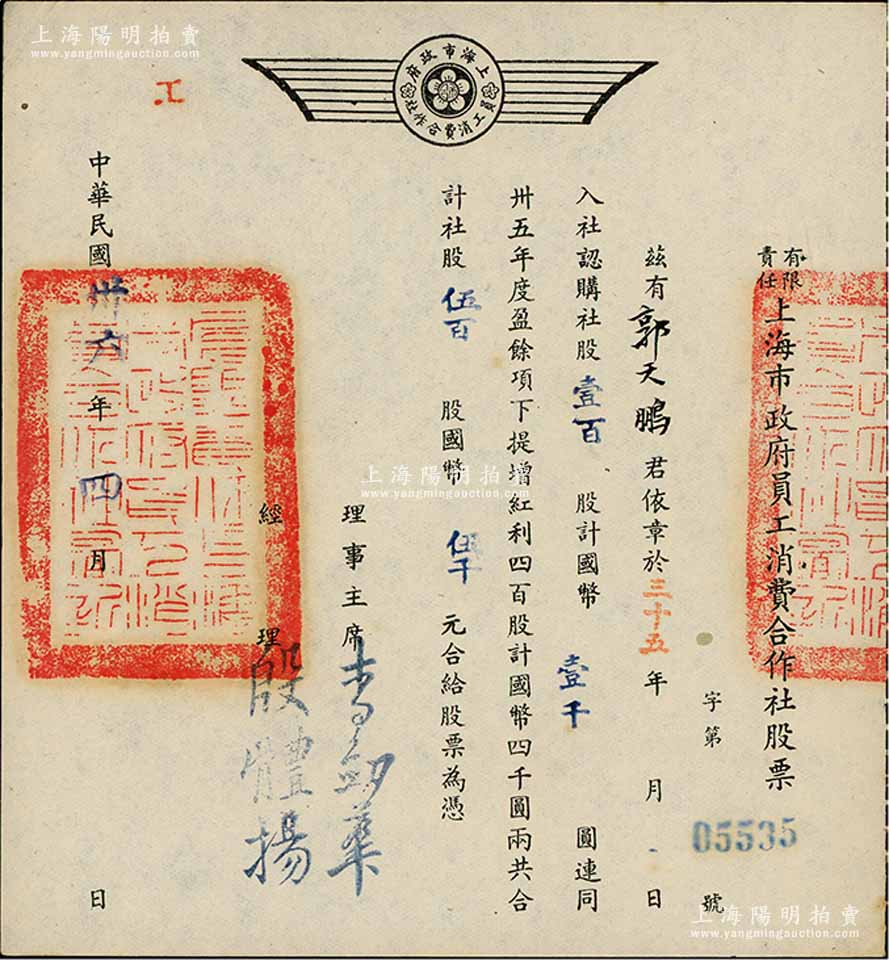 上海陽明拍賣
www.yangmingauction.com
上海市政府
員工消費合作社
有限責任上海市政府員工消費合作社股票
字第05535號
茲有郭天鵬君依章於三十五年 月 日
入社認購社股壹百股計國幣壹千圓連同
卅五年度盈餘項下提增紅利四百股計國幣四千圓兩共合
計社股伍百股國幣伍千元合給股票為憑
理事主席
經理殷體揚
中華民國卅六年四月 日
工
上海陽明拍賣
www.yangmingauction.com
上海陽明拍賣
www.yangmingauction.com